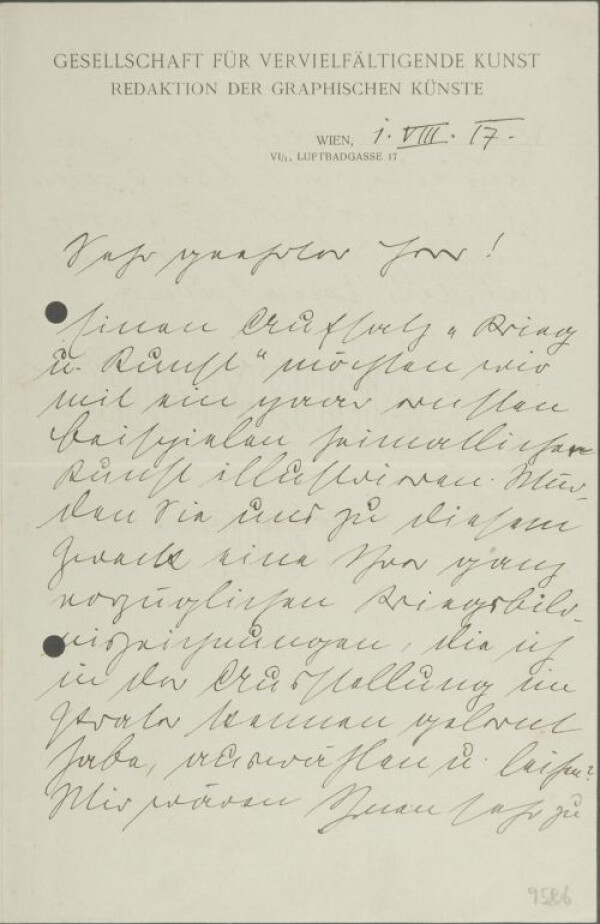 GESELLSCHAFT FÜR VERVIELFÄLTIGENDE KUNST
REDAKTION DER GRAPHISCHEN KÜNSTE
WIEN, 1. VIII. 17.
VI/1, LUFTBADGASSE 17
Sehr geehrter Herr!
Einen Aufsatz „Krieg
u. Kunst“ möchten wir
mit ein paar ersten
Beispielen heimatlicher
Kunst illustrieren. Wür-
den Sie uns zu diesem
Zweck eine Ihrer ganz
vorzüglichen Kriegsbild-
niszeichnungen, die ich
in der Ausstellung im
Prater kennen gelernt
habe, auswählen u. leihen?
Wir wären Ihnen sehr zu
9586